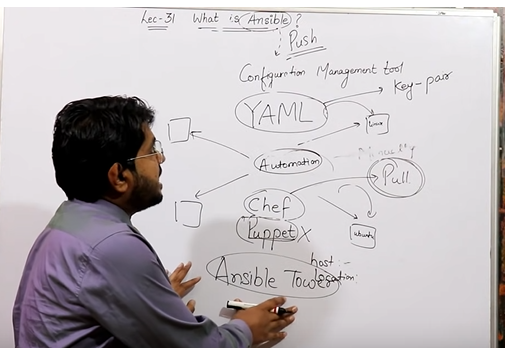 Lec-31 What is Ansible ?
Push
Configuration Management tool
YAML
Key-pair
linux
Automation
Pull
Chef
Puppet X
ubuntu
host :-
Ansible Tower location: